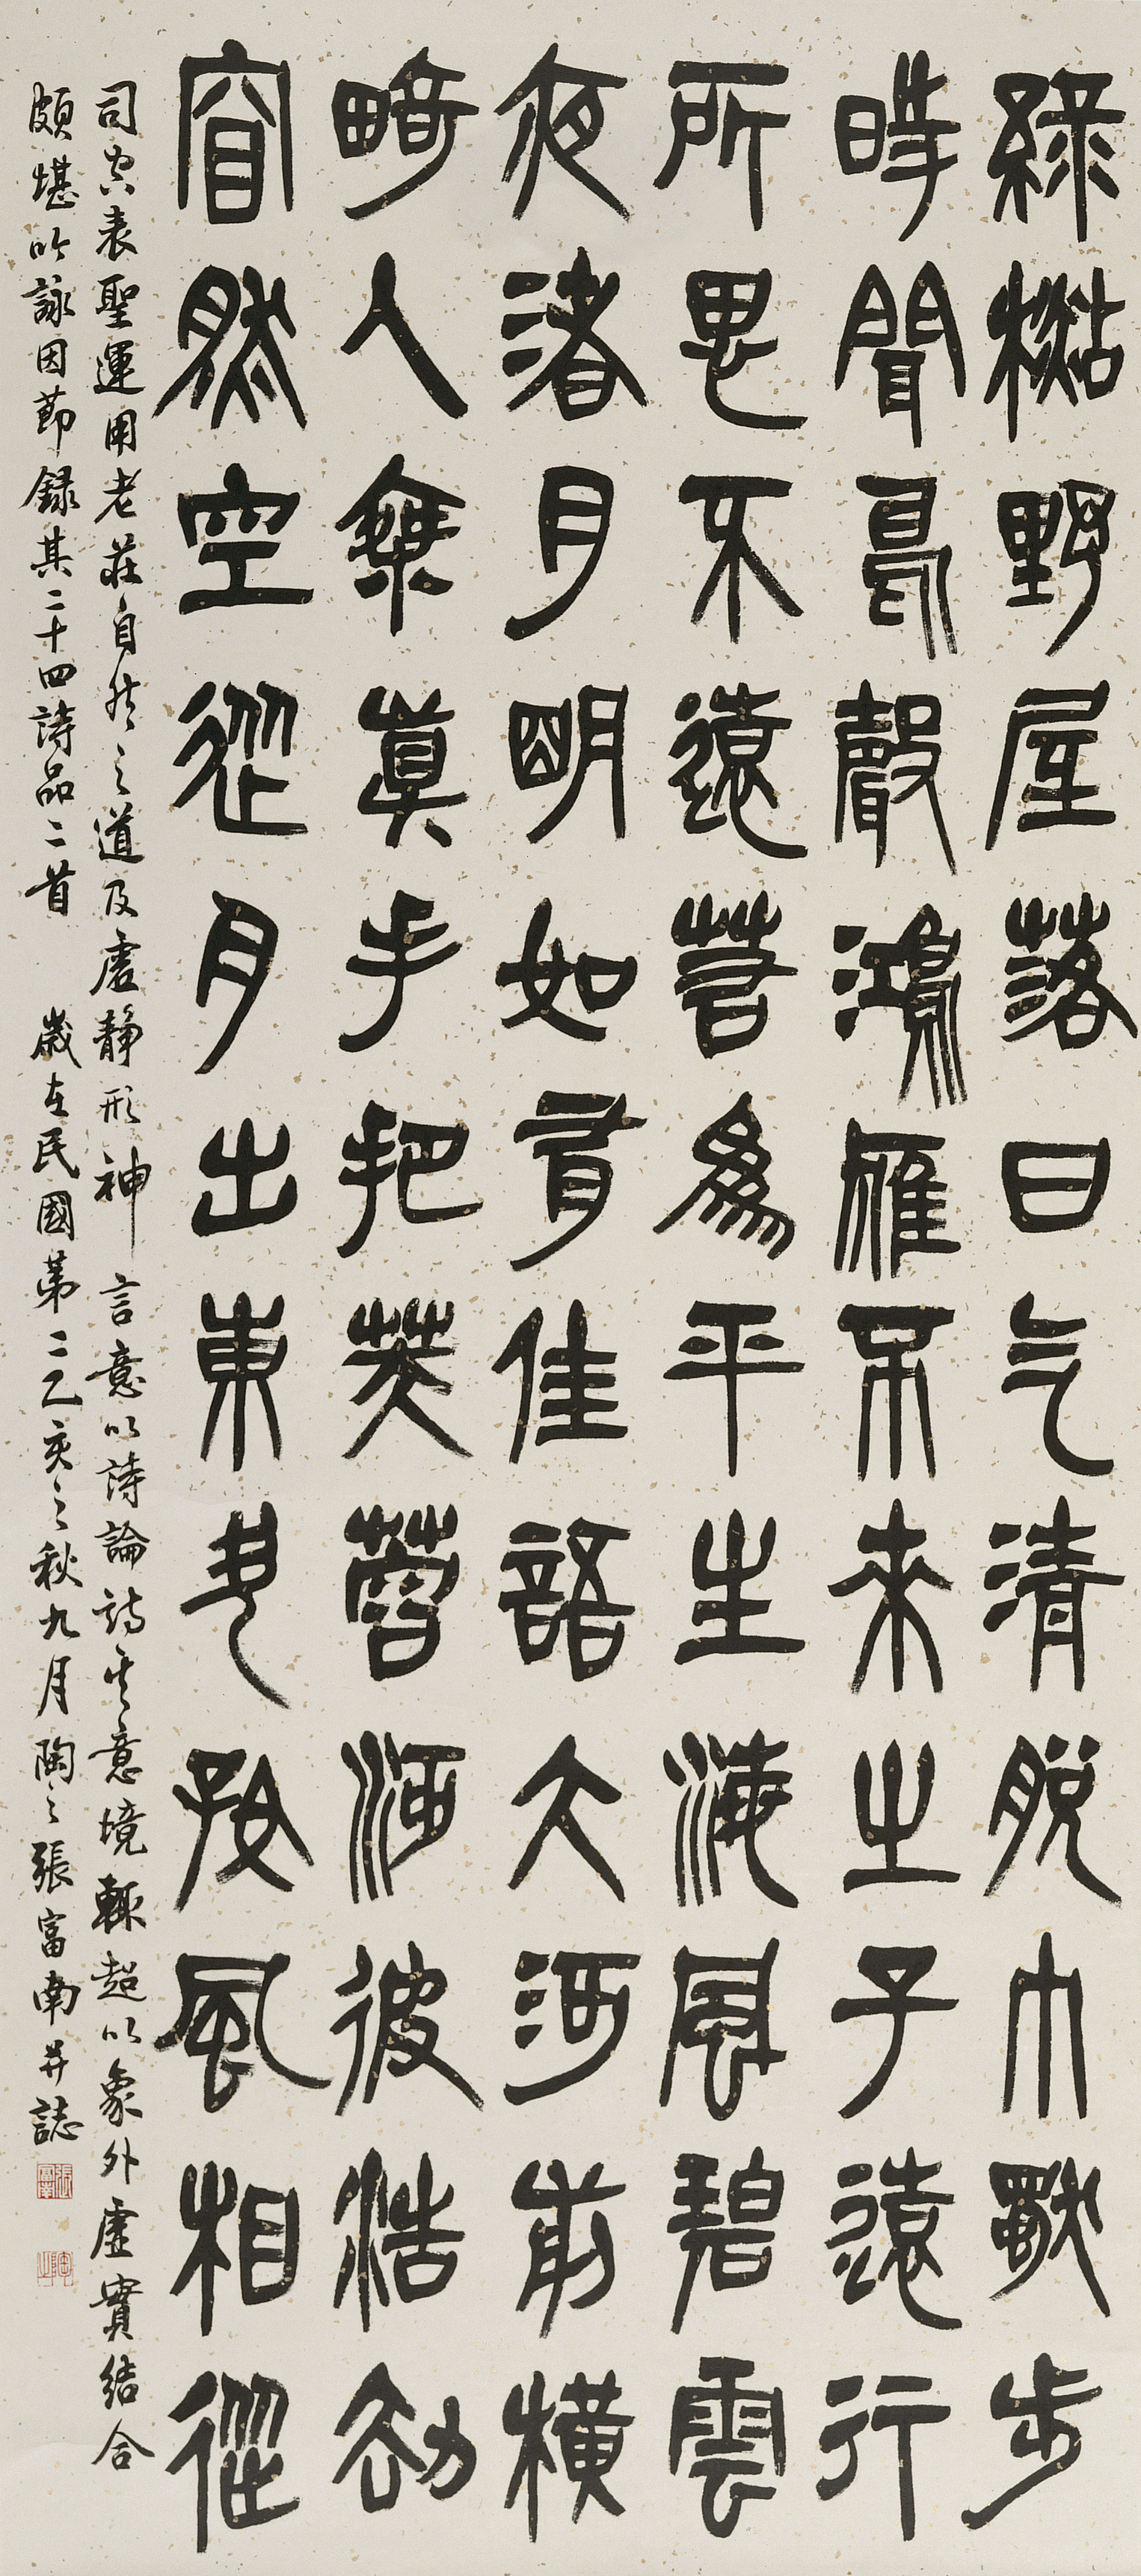 綠檆野屋落日气清脫巾獨步
時聞鳥聲鴻雁不來之子遠行
所思不遠若為平生海風碧雲
夜渚月明如有佳語大河前橫
畸人乘真手把芙蓉泛彼浩劫
窅然空蹤月出東斗好風相從
司空表聖運用老莊自然之道及虛靜形神言意以詩論詩其意境輒超以象外虛實結合
頗堪吟詠因節錄其二十四詩品二首 歲在民國第二乙亥之秋九月陶之張富南并誌
張富南
陶之